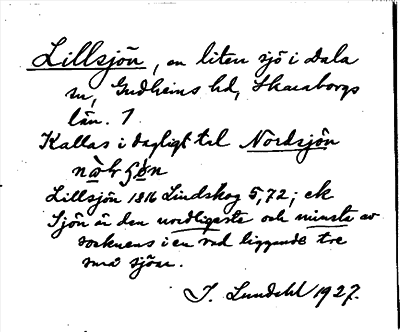 Lillsjön, en liten sjö i Dala
sn, Gudhems hd, Skaraborgs
län. 1
Kallas i dagligt tal Nordsjön
Lillsjön 1816 Lindskog 5,72; ek
Sjön är den nordligaste och minsta av
socknens i en rad liggande tre
små sjöar.
I. Lundahl 1927.